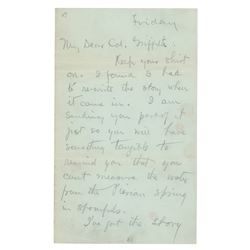 Friday
My Dear Col. Griffith:
Keep your shirt
on. I found I had
to rewrite the story when
it came in. I am
sending you part of it
just so you will have
something tangible to
remind you that you
can't measure the water
from the Pierian spring
in spoonfuls.
I've got the story